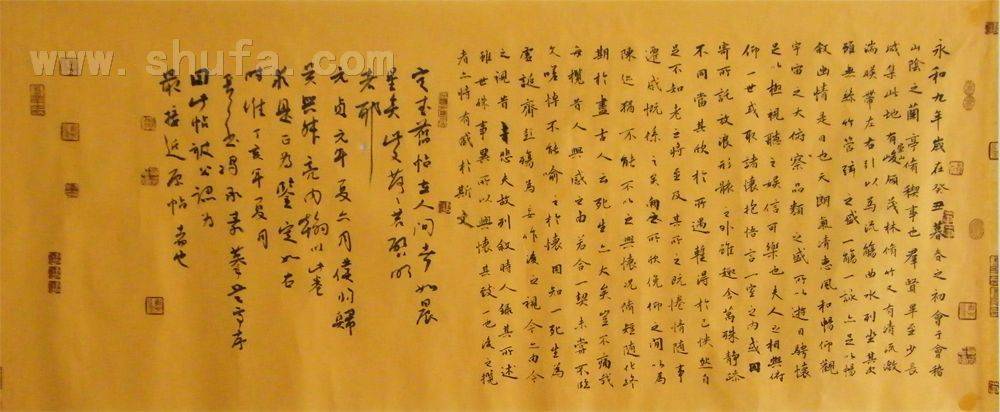 www.shufa.com
永和九年歲在癸丑暮春之初會于會稽
山陰之蘭亭脩稧事也羣賢畢至少長
咸集此地有崇山峻領茂林脩竹又有清流激
湍暎帶左右引以為流觴曲水列坐其次
雖無絲竹管弦之盛一觴一詠亦足以暢
敘幽情是日也天朗氣清惠風和暢仰觀
宇宙之大俯察品類之盛所以遊目騁懷
足以極視聽之娛信可樂也夫人之相與俯
仰一世或取諸懷抱悟言一室之內或因
寄所託放浪形骸之外雖趣舍萬殊靜躁
不同當其欣於所遇暫得於己怏然自
足不知老之將至及其所之既惓情隨事
遷感慨係之矣向之所欣俛仰之間以為
陳迹猶不能不以之興懷況脩短隨化終
期於盡古人云死生亦大矣豈不痛哉
每攬昔人興感之由若合一契未嘗不臨
文嗟悼不能喻之於懷固知一死生為
虛誕齊彭殤為妄作後之視今亦由今
之視昔悲夫故列敘時人錄其所述
雖世殊事異所以興懷其致一也後之攬
者亦將有感於斯文
定武舊帖在人間者如晨
星矣此又落落若啓明
者耶
元貞元年夏六月僕將歸
吳興叔亮內翰以此卷
求是正為鑒定如右
時惟丁亥年夏月
承素摹蘭亭序
因此帖被公認為
最接近原帖者也